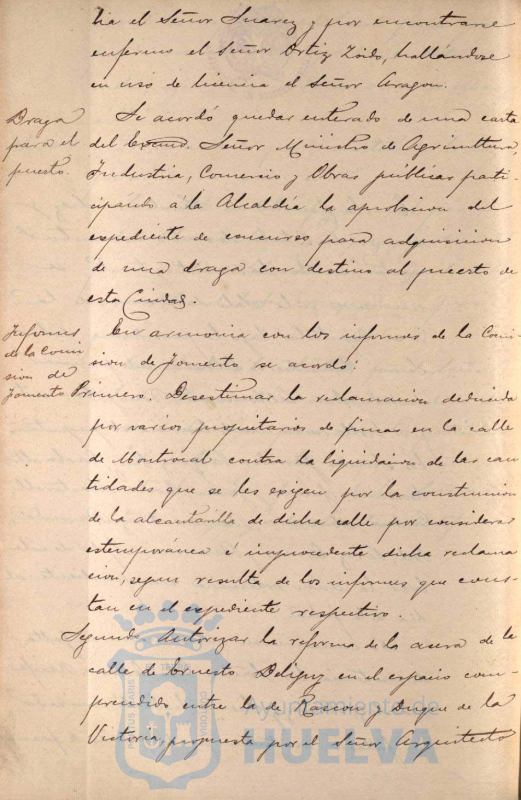 lia el Señor Suarez y por encontrarse
enfermo el Señor Ortiz Zoido, hallándose
en uso de licencia el Señor Aragon.
Draga
para el
puerto.
Se acordó quedar enterado de una carta
del Excmo. Señor Ministro de Agricultura,
Industria, Comercio y Obras públicas parti-
cipando á la Alcaldía la aprobacion del
expediente de concurso para adquisicion
de una draga con destino al puerto de
esta Ciudad.
Informes
de la Comi
sion de
Fomento
En armonia con los informes de la Comi-
sion de Fomento se acordó:
Primero. Desestimar la reclamacion deducida
por varios propietarios de fincas en la calle
de Montrocal contra la liquidacion de las can
tidades que se les exigen por la construccion
de la alcantarilla de dicha calle por considerar
estemporánea é improcedente dicha reclama
cion, segun resulta de los informes que cons-
tan en el espediente respectivo.
Segundo Autorizar la reforma de la acera de la
calle de Ernesto Deligny en el espacio com-
prendido entre la de Rascon y Duque de la
Victoria, propuesta por el Señor Arquitecto
Ayuntamiento de
HUELVA